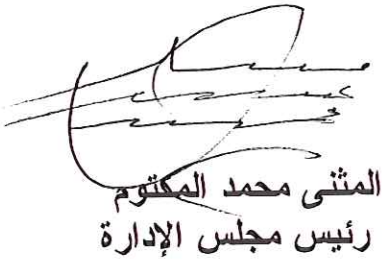 المثنى محمد المكتوم
رئيس مجلس الإدارة